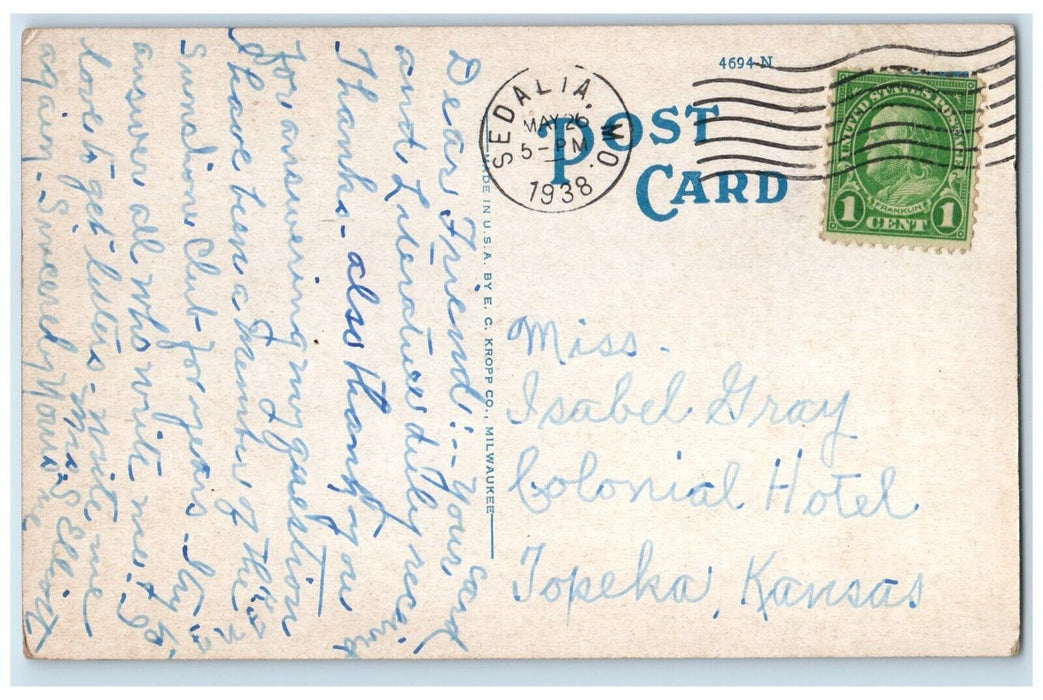 4694-N
POST
CARD
SEDALIA, MO.
MAY 26
5-PM
1938
UNITED STATES POSTAGE
FRANKLIN
1 CENT 1
MADE IN U.S.A. BY E. C. KROPP CO., MILWAUKEE
Dear Friend:- Your Card
and Literature duly received
Thanks- also thank you
for answering my question
I have been a Member of the
Sunshine Club- for years.
answer all who write me. I
love to get letters- write me
again. Sincerely Yours
Miss.
Isabel Gray
Colonial Hotel
Topeka, Kansas